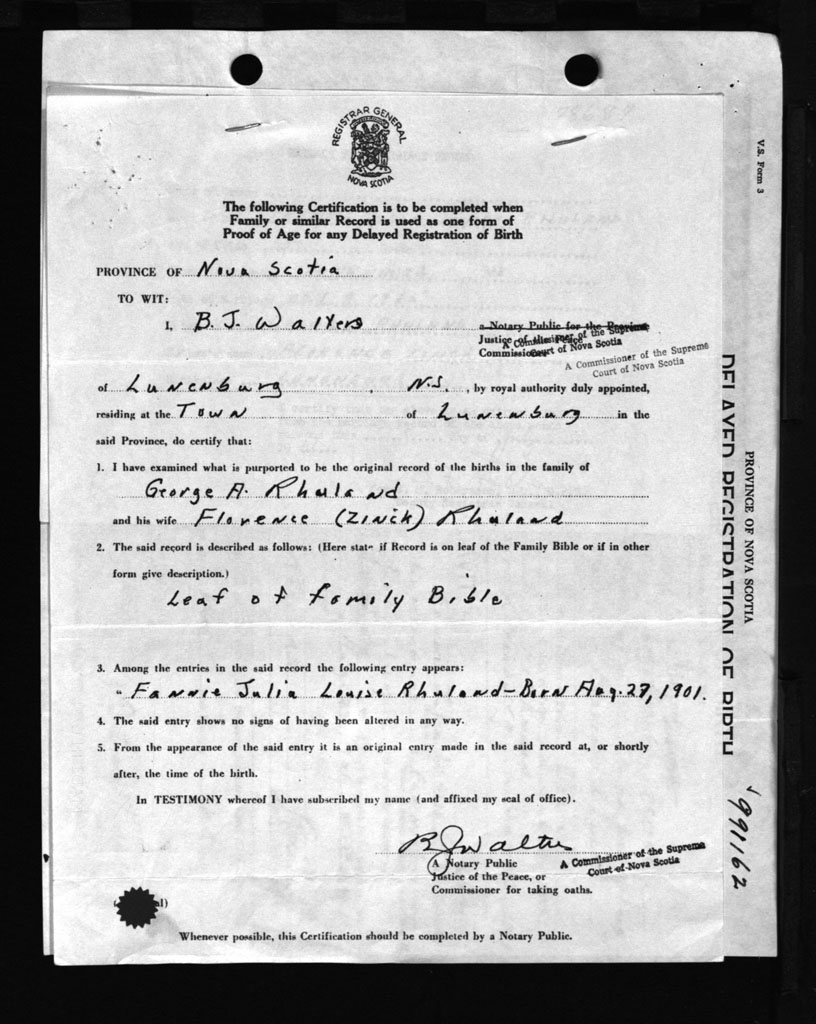 REGISTRAR GENERAL
NOVA SCOTIA
The following Certification is to be completed when
Family or similar Record is used as one form of
Proof of Age for any Delayed Registration of Birth
PROVINCE OF Nova Scotia
TO WIT:
I, B. J. Walters a Notary Public for the Province
Justice of the Peace
Commissioner
A Commissioner of the Supreme
Court of Nova Scotia
A Commissioner of the Supreme
Court of Nova Scotia
of Lunenburg, N.S., by royal authority duly appointed,
residing at the Town of Lunenburg in the
said Province, do certify that:
1. I have examined what is purported to be the original record of the births in the family of
George A. Rhuland
and his wife Florence (Zinck) Rhuland
2. The said record is described as follows: (Here state if Record is on leaf of the Family Bible or if in other
form give description.)
Leaf of Family Bible
3. Among the entries in the said record the following entry appears:
" Fannie Julia Louise Rhuland - Born Aug. 27, 1901.
4. The said entry shows no signs of having been altered in any way.
5. From the appearance of the said entry it is an original entry made in the said record at, or shortly
after, the time of the birth.
In TESTIMONY whereof I have subscribed my name (and affixed my seal of office).
B J Walters
A Notary Public
Justice of the Peace, or
Commissioner for taking oaths.
A Commissioner of the Supreme
Court of Nova Scotia
Whenever possible, this Certification should be completed by a Notary Public.
V.S. Form 3
PROVINCE OF NOVA SCOTIA
DELAYED REGISTRATION OF BIRTH
991162